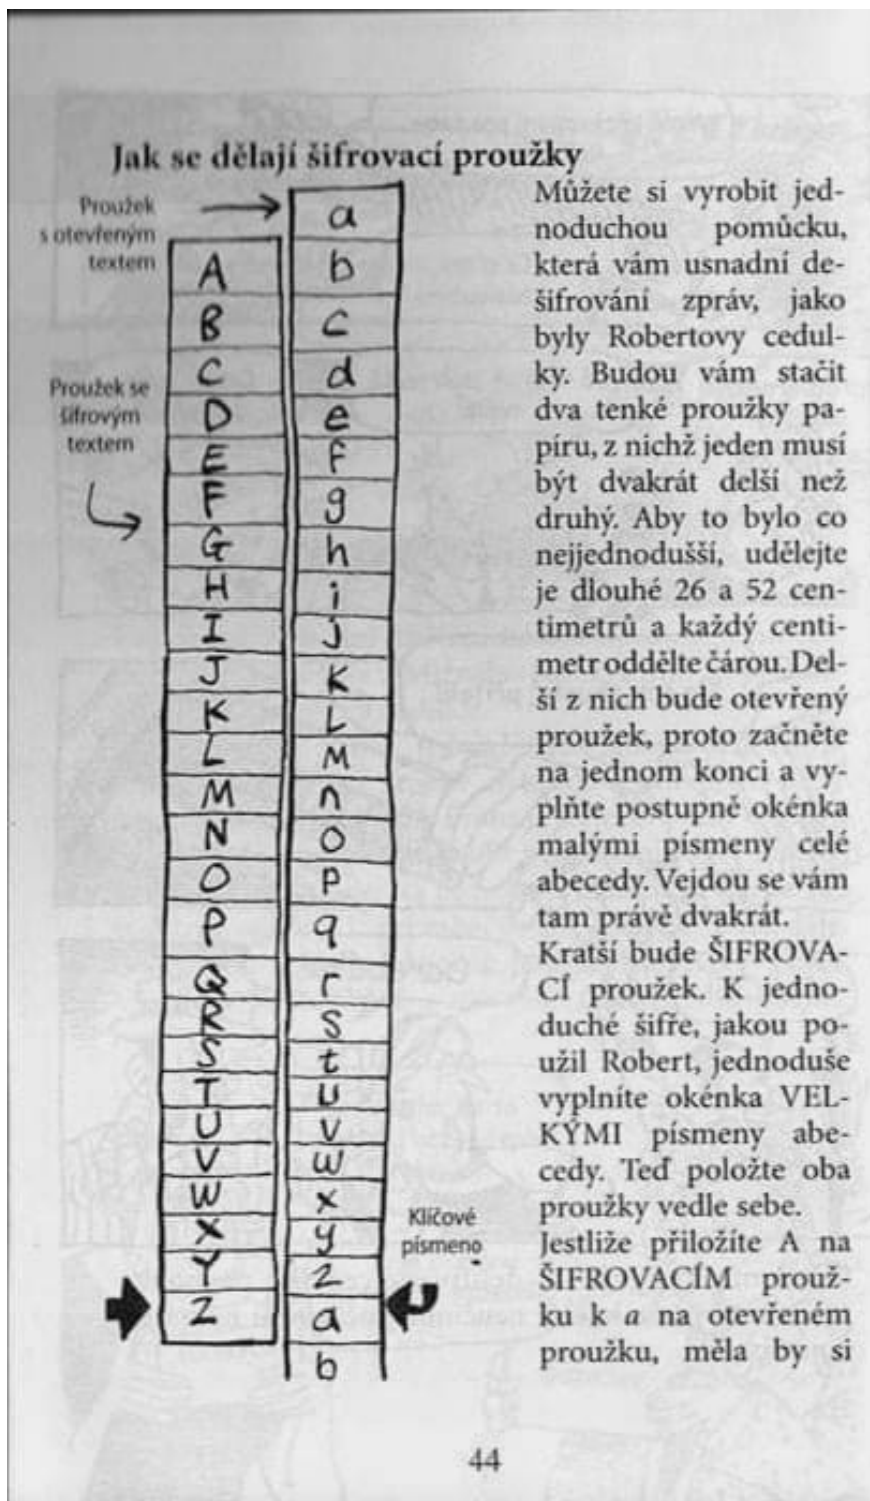 Jak se dělají šifrovací proužky
Proužek
s otevřeným
textem
Proužek se
šifrovým
textem
A
B
C
D
E
F
G
H
I
J
K
L
M
N
O
P
Q
R
S
T
U
V
W
X
Y
Z
a
b
c
d
e
f
g
h
i
j
k
l
m
n
o
p
q
r
s
t
u
v
w
x
y
z
a
b
Klíčové
písmeno
Můžete si vyrobit jed-
noduchou pomůcku,
která vám usnadní de-
šifrování zpráv, jako
byly Robertovy cedul-
ky. Budou vám stačit
dva tenké proužky pa-
píru, z nichž jeden musí
být dvakrát delší než
druhý. Aby to bylo co
nejjednodušší, udělejte
je dlouhé 26 a 52 cen-
timetrů a každý centi-
metr oddělte čárou. Del-
ší z nich bude otevřený
proužek, proto začněte
na jednom konci a vy-
plňte postupně okénka
malými písmeny celé
abecedy. Vejdou se vám
tam právě dvakrát.
Kratší bude ŠIFROVA-
CÍ proužek. K jedno-
duché šifře, jakou po-
užil Robert, jednoduše
vyplníte okénka VEL-
KÝMI písmeny abe-
cedy. Teď položte oba
proužky vedle sebe.
Jestliže přiložíte A na
ŠIFROVACÍM prouž-
ku k a na otevřeném
proužku, měla by si
44